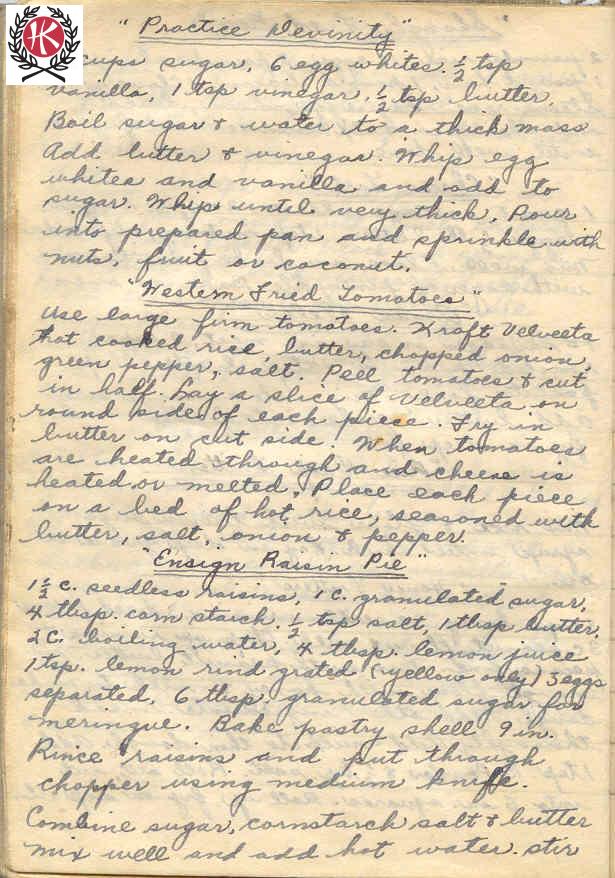 HK
"Practice Devinity"
cups sugar, 6 egg whites. ½ tsp
vanilla, 1 tsp vinegar, ½ tsp butter.
Boil sugar & water to a thick mass
Add butter & vinegar. Whip egg
whites and vanilla and add to
sugar. Whip until very thick. Pour
into prepared pan and sprinkle with
nuts, fruit or coconut.
"Western Fried Tomatoes"
Use large firm tomatoes. Kraft Velveeta
hot cooked rice, butter, chopped onion,
green pepper, salt. Peel tomatoes & cut
in half. Lay a slice of Velveeta on
round side of each piece. Fry in
butter on cut side. When tomatoes
are heated through and cheese is
heated or melted. Place each piece
on a bed of hot rice, seasoned with
butter, salt, onion & pepper.
"Ensign Raisin Pie"
1½ c. seedless raisins, 1 c. granulated sugar,
4 tbsp. corn starch, ½ tsp salt, 1 tbsp butter,
2 c. boiling water, 4 tbsp. lemon juice
1 tsp. lemon rind grated (yellow only) 3 eggs
separated, 6 tbsp. granulated sugar for
meringue. Bake pastry shell 9 in.
Rince raisins and put through
chopper using medium knife.
Combine sugar, cornstarch salt & butter
mix well and add hot water. stir